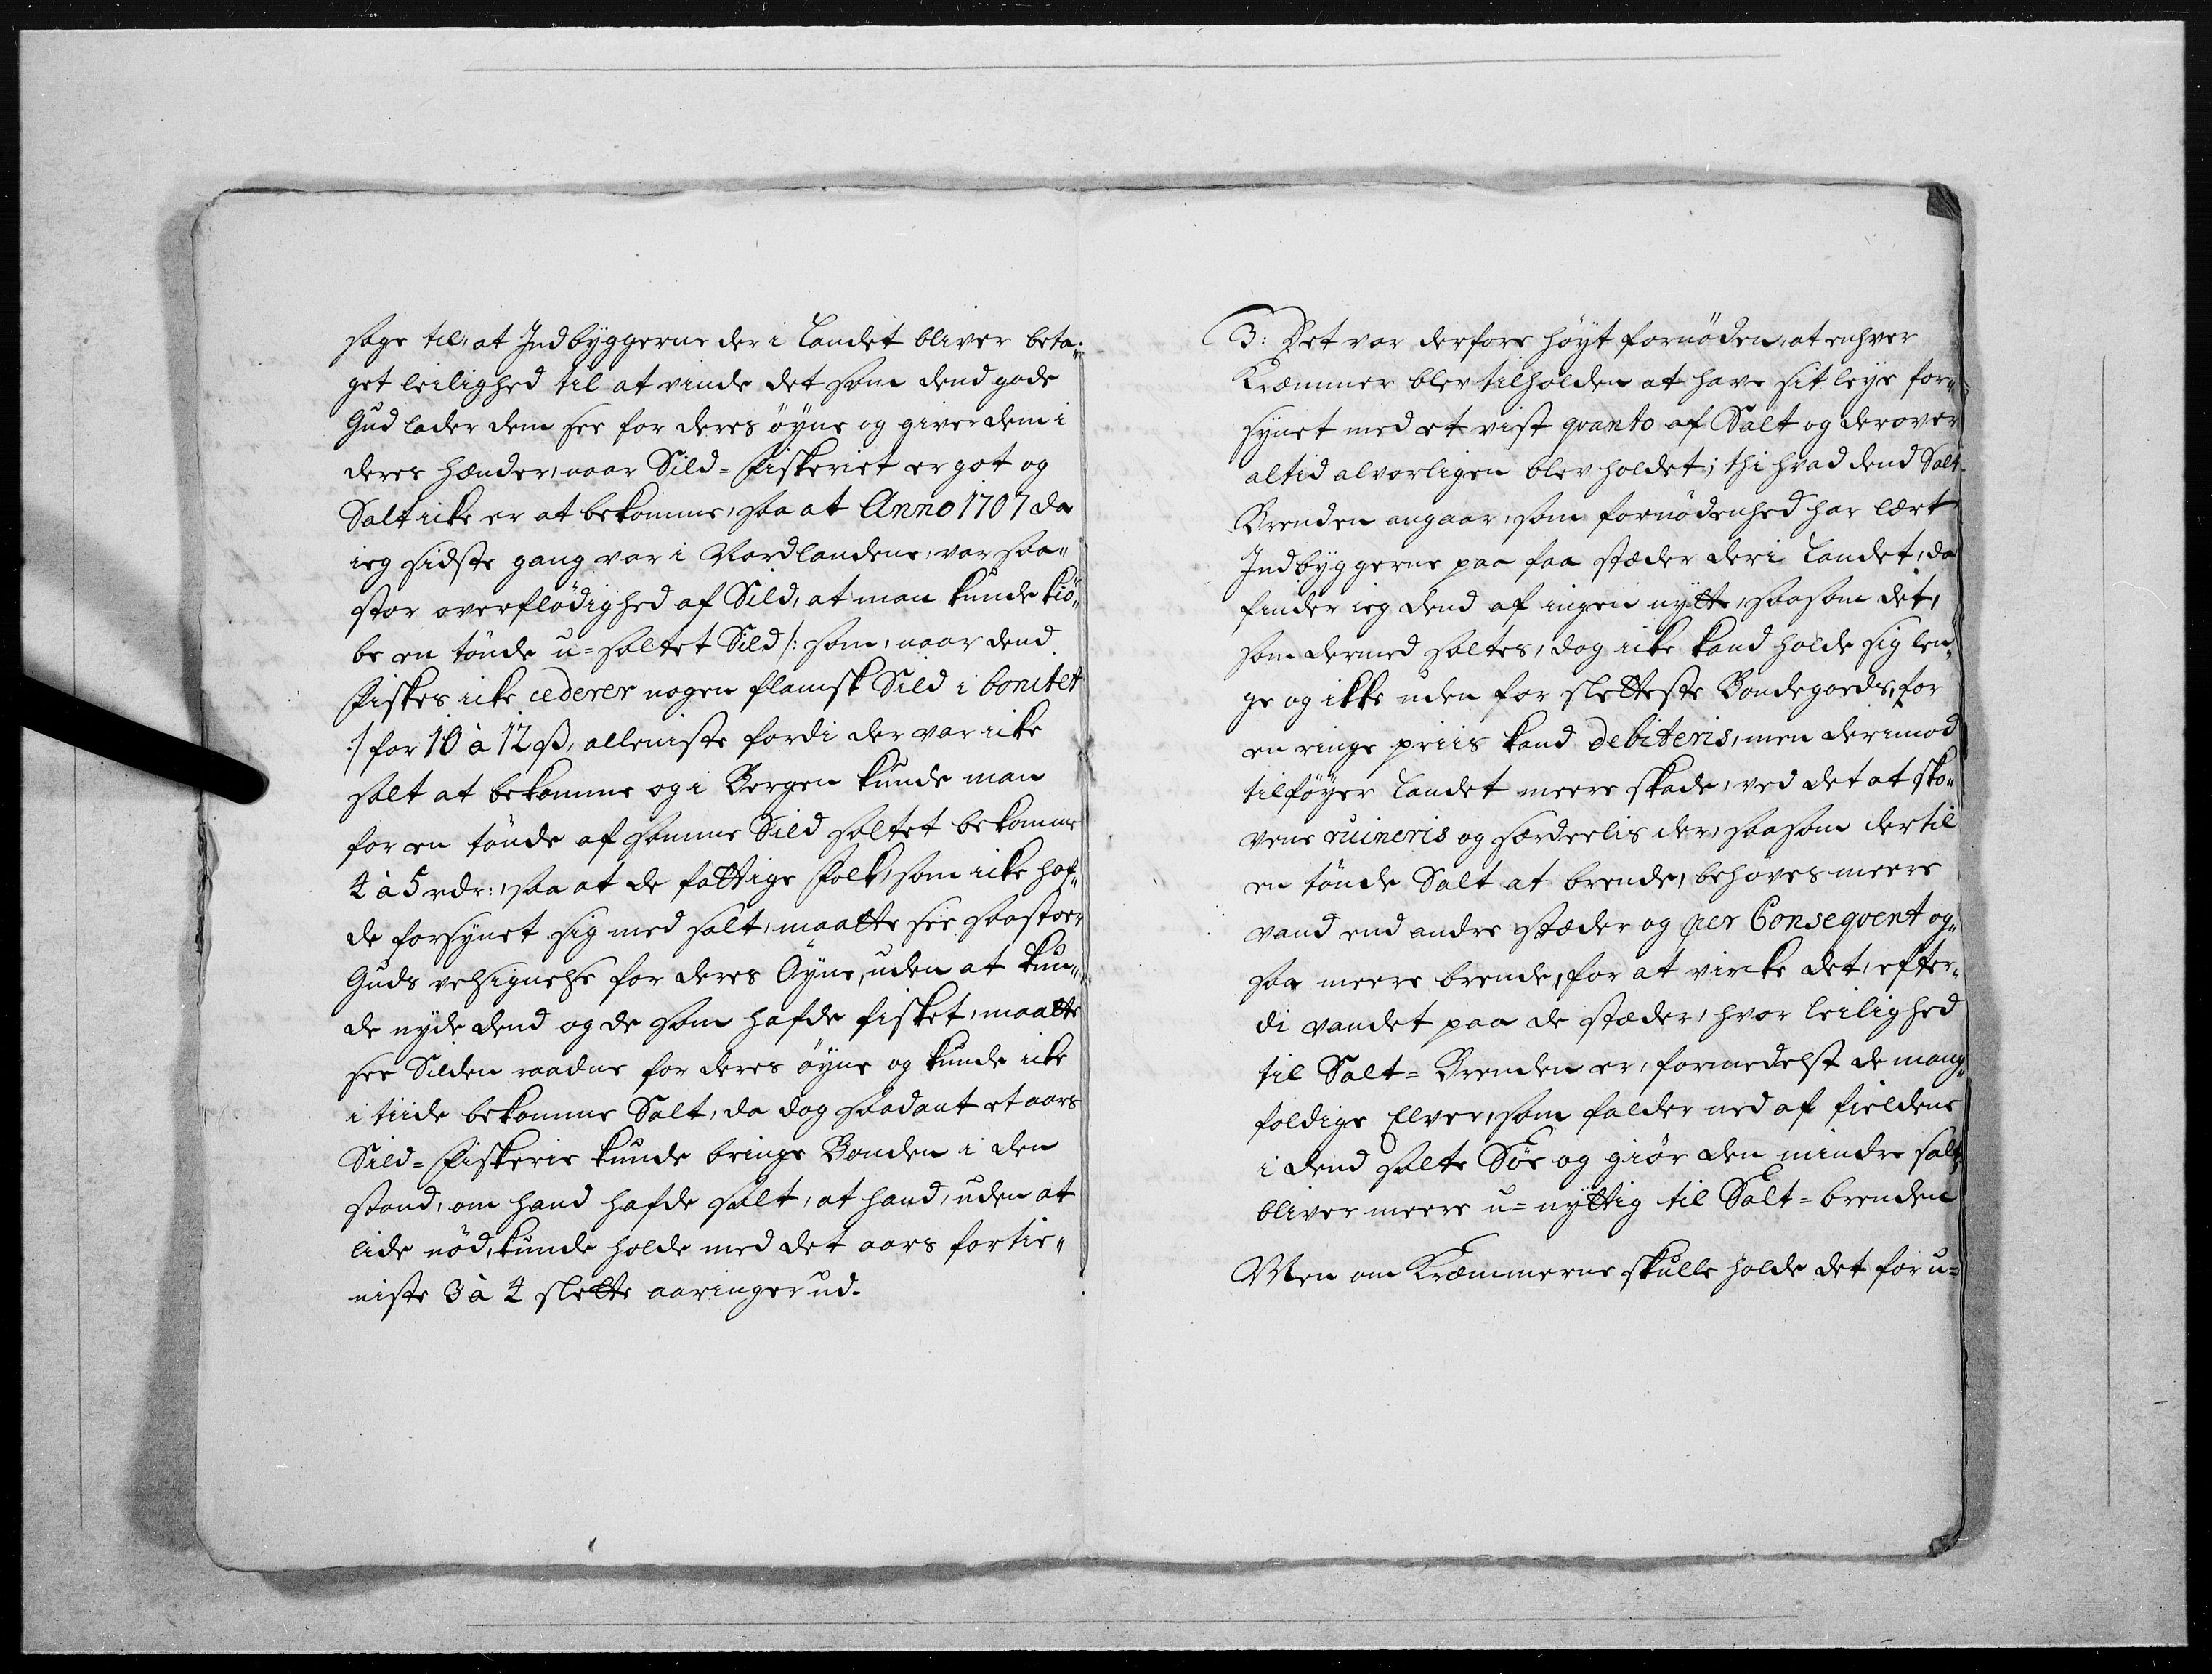 sage til, at Indbyggerne der i Landet bliver beta„
get leilighed til at vinde det som dend gode
Gud lader dem see for deres öyne og giver dem i
deres hænder, naar Sild-Fiskeriet er got og
Salt icke er at bekomme, saa at Anno 1707 da
ieg sidste gang var i Nordlandene, var saa„
stor overflödighed af Sild, at man kunde kiö„
be en tönde u-saltet Sild /: som, naar dend
Fiskes icke cederer nogen flamsk Sild i bonitet
:/ for 10 à 12 ß, alleniste fordi der var icke
salt at bekomme og i Bergen kunde man
for en tönde af samme Sild saltet bekomme
4 à 5 rdr:, saa at de fattige Folk, som icke haf„
de forsynet sig med salt, maatte see saa stoer
Guds velsignelse for deres Öyne, uden at kun„
de nyde dend og de som hafde fisket, maatte
see Silden raadne for deres öyne og kunde icke
i tiide bekomme Salt, da dog saadant et aars
Sild-Fiskerie kunde bringe Bonden i den
stand, om hand hafde salt, at hand, uden at
lide nöd, kunde holde med det aars fortie„
niste 3 à 4 slette aaringer ud.
3: Det var derfore höyt fornöden, at enhver
Kræmmer blev tilholden at have sit leye for„
synet med et vist qvanto af Salt og derover
altid alvorligen blev holdet; thi hvad dend Salt-
Brenden angaar, som fornödenhed har lært
Indbyggerne paa faa stæder der i Landet, da
finder ieg dend af ingen nytte, saasom det,
som dermed saltes, dog icke kand holde sig len„
ge og ikke uden for sletteste Bondegoeds, for
en ringe priis kand debiteris, men derimod
tilföyer Landet meere skade, ved det at sko„
vene ruineris og særdeelis der, saasom der til
en tönde Salt at brende, behöves meere
vand end andre stæder og per Conseqvent og„
saa meere brende, for at vircke det, efter„
di vandet paa de stæder, hvor leilighed
til Salt-Brenden er, formedelst de mang„
foldige Elver, som falder ned af fieldene
i dend salte Söe og giör den mindre salt,
bliver meere u-nyttig til Salt-brenden
Men om Kræmmerne skulle holde det for u-